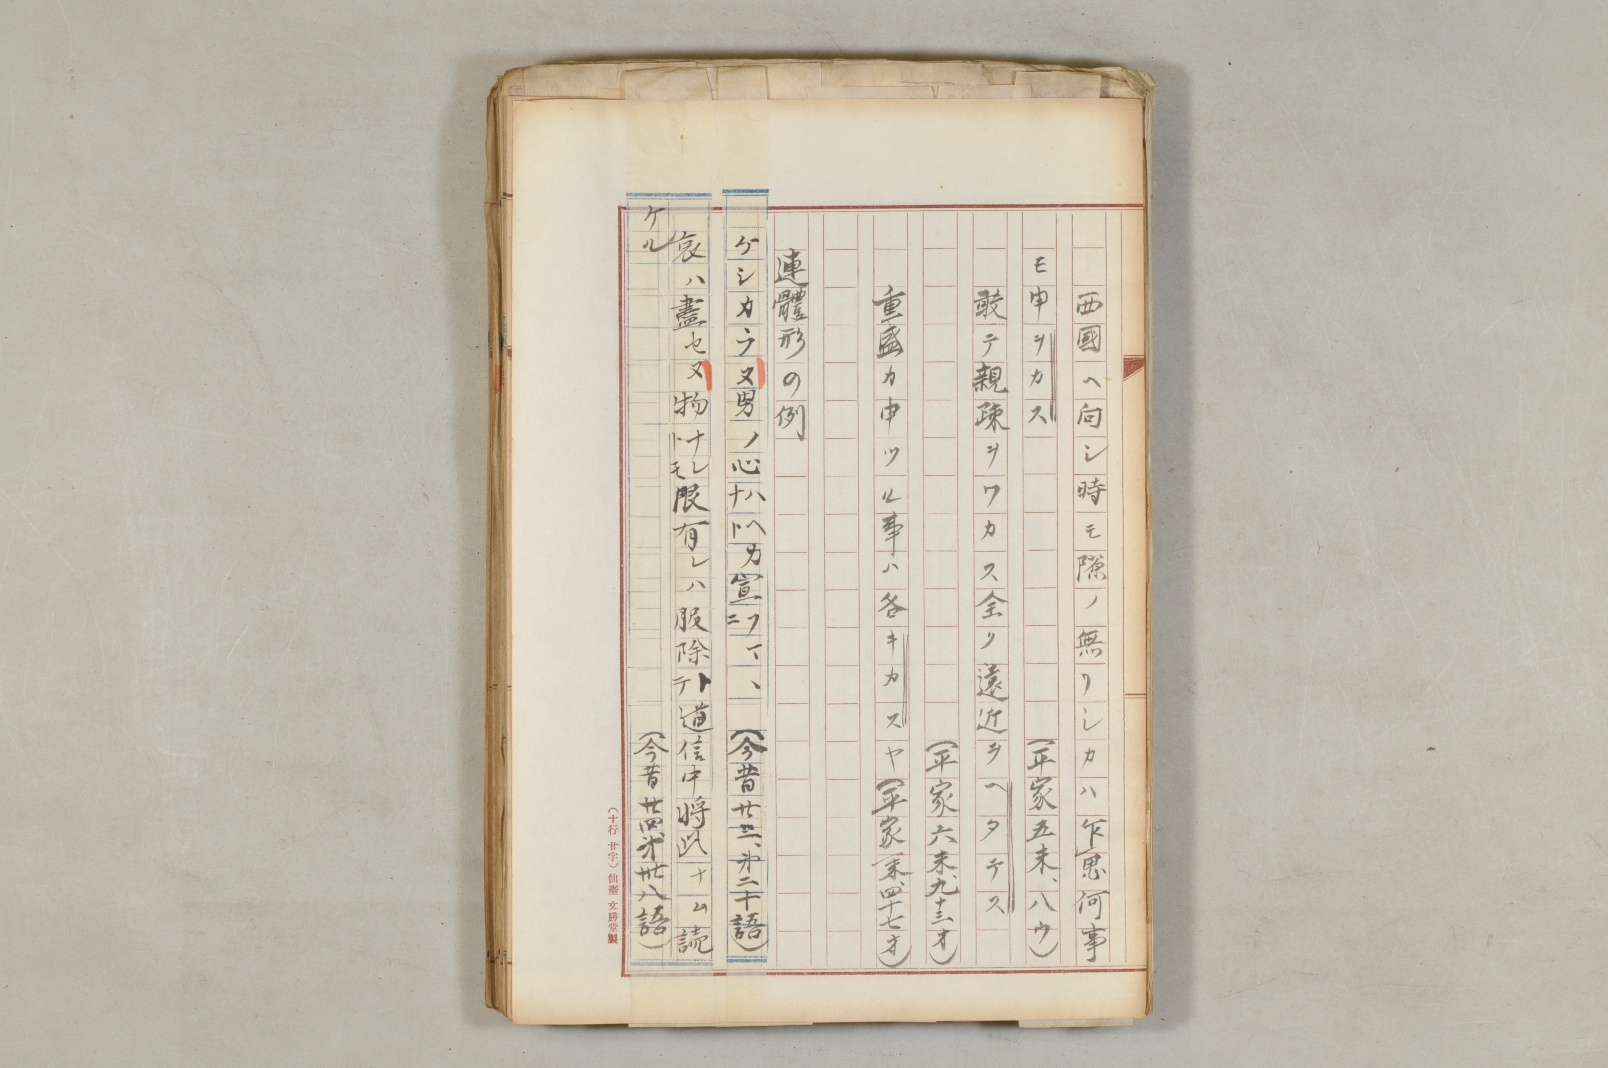 西國ヘ向シ時モ隙ノ無リシカハ乍思何事
モ申ヲカス（平家五末、八ウ）
敢テ親疎ヲワカス全ク遠近ヲヘタテス
（平家六末、九十三オ）
重盛カ申ツル事ハ各キカスヤ（平家一末、四十七オ）
連體形の例
ケシカラヌ男ノ心ハヘナトカ宣フニ丁、（今昔廿二、第二十語）
哀ハ盡セヌ物ナレトモ限有レハ服除テト道信中將此ナム読
ケル（今昔廿四、第卅八語）
（十行 廿字）仙臺 文勝堂製